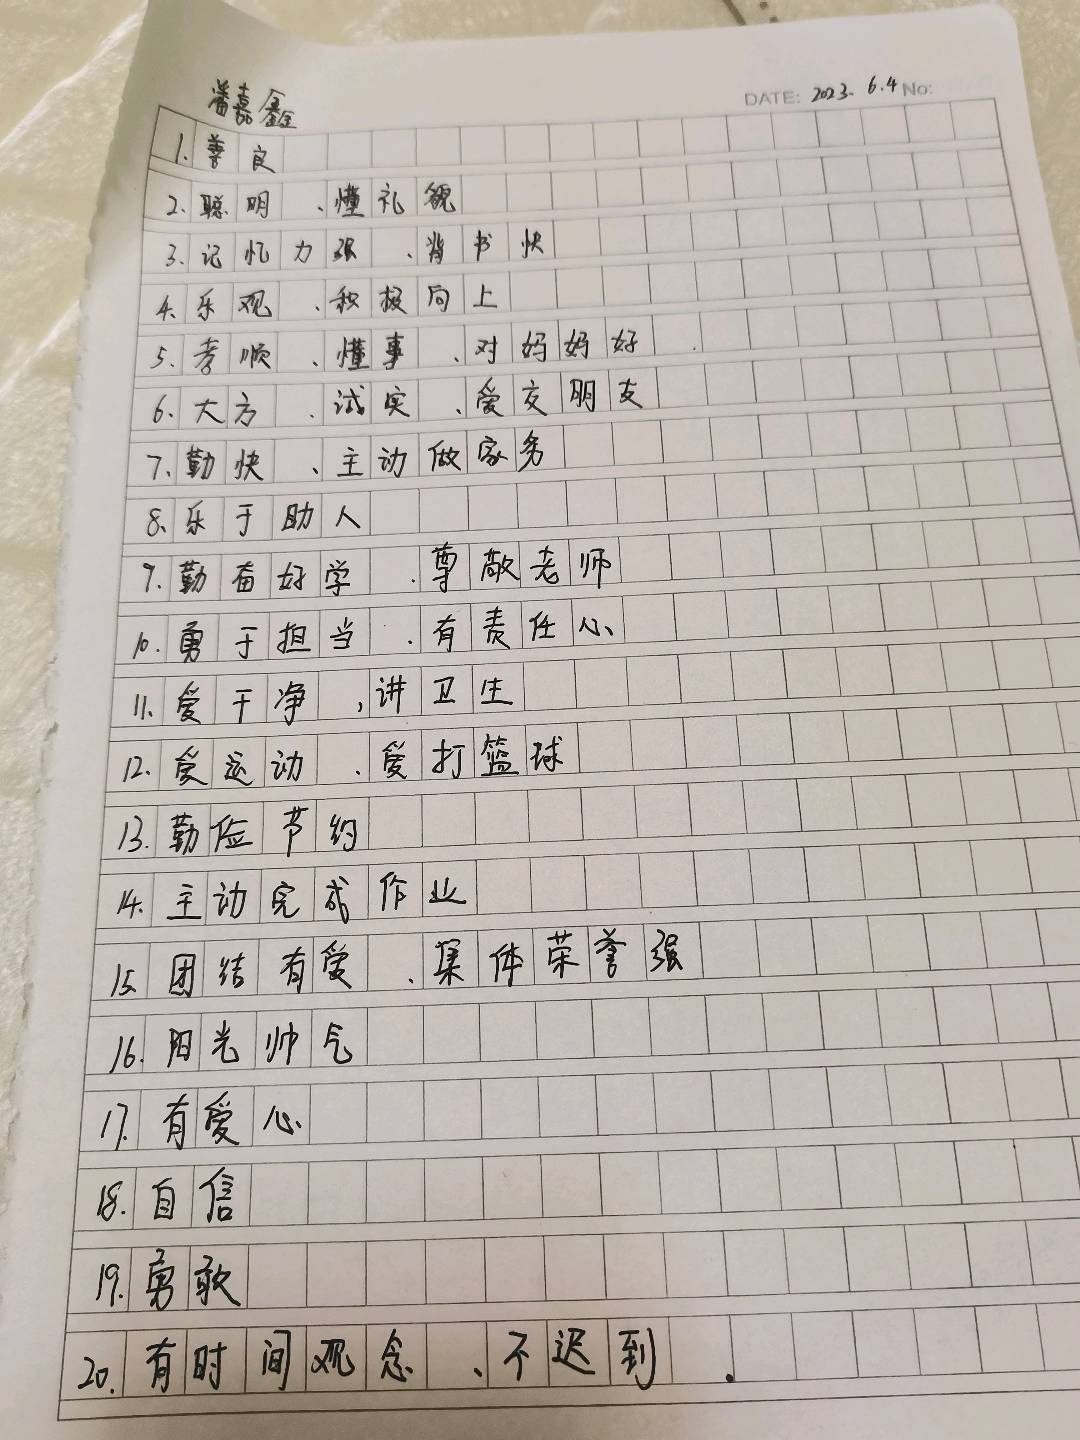 潘嘉鑫
DATE: 2023. 6.4 No:
1. 善良
2. 聪明、懂礼貌
3. 记忆力强、背书快
4. 乐观、积极向上
5. 孝顺、懂事、对妈妈好.
6. 大方、诚实、爱交朋友
7. 勤快、主动做家务
8. 乐于助人
9. 勤奋好学、尊敬老师
10. 勇于担当、有责任心
11. 爱干净,讲卫生
12. 爱运动、爱打篮球
13. 勤俭节约
14. 主动完成作业
15. 团结有爱、集体荣誉强
16. 阳光帅气
17. 有爱心
18. 自信
19. 勇敢
20. 有时间观念、不迟到.